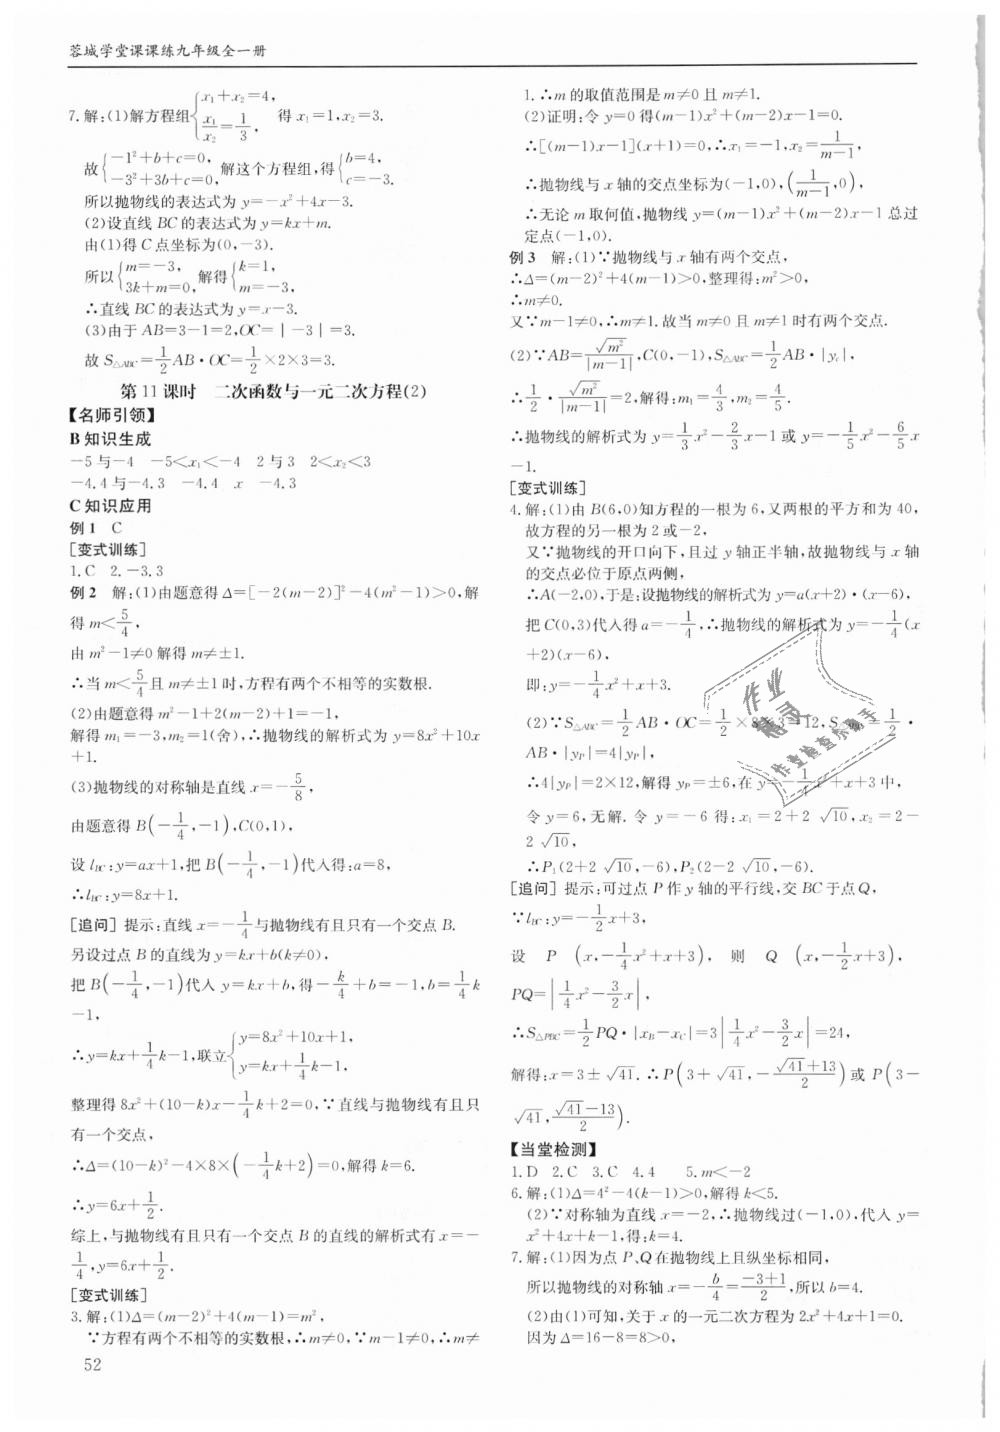 蓉城学堂课课练九年级全一册
7.解:(1)解方程组{x₁+x₂=4, x₁/x₂=1/3, 得x₁=1,x₂=3.
故{-1²+b+c=0, -3²+3b+c=0, 解这个方程组,得{b=4, c=-3.
所以抛物线的表达式为y=-x²+4x-3.
(2)设直线BC的表达式为y=kx+m.
由(1)得C点坐标为(0,-3).
所以{m=-3, 3k+m=0, 解得{k=1, m=-3,
∴直线BC的表达式为y=x-3.
(3)由于AB=3-1=2,OC=|-3|=3.
故S△ABC=1/2AB·OC=1/2×2×3=3.
第11课时 二次函数与一元二次方程(2)
【名师引领】
B 知识生成
-5与-4 -5<x₁<-4 2与3 2<x₂<3
-4.4与-4.3 -4.4 x -4.3
C 知识应用
例1 C
[变式训练]
1.C 2.-3,3
例2 解:(1)由题意得Δ=[-2(m-2)]²-4(m²-1)>0,解
得m<5/4,
由m²-1≠0解得m≠±1.
∴当m<5/4且m≠±1时,方程有两个不相等的实数根.
(2)由题意得m²-1+2(m-2)+1=-1,
解得m₁=-3,m₂=1(舍),∴抛物线的解析式为y=8x²+10x
+1.
(3)抛物线的对称轴是直线x=-5/8,
由题意得B(-1/4,-1),C(0,1),
设lBC:y=ax+1,把B(-1/4,-1)代入得:a=8,
∴lBC:y=8x+1.
[追问] 提示:直线x=-1/4与抛物线有且只有一个交点B.
另设过点B的直线为y=kx+b(k≠0),
把B(-1/4,-1)代入y=kx+b,得-k/4+b=-1,b=1/4k
-1,
∴y=kx+1/4k-1,联立{y=8x²+10x+1, y=kx+1/4k-1,
整理得8x²+(10-k)x-1/4k+2=0,∵直线与抛物线有且只
有一个交点,
∴Δ=(10-k)²-4×8×(-1/4k+2)=0,解得k=6.
∴y=6x+1/2.
综上,与抛物线有且只有一个交点B的直线的解析式有x=-
1/4,y=6x+1/2.
[变式训练]
3.解:(1)Δ=(m-2)²+4(m-1)=m²,
∵方程有两个不相等的实数根,∴m≠0,∵m-1≠0,∴m≠
52
1.∴m的取值范围是m≠0且m≠1.
(2)证明:令y=0得(m-1)x²+(m-2)x-1=0.
∴[(m-1)x-1](x+1)=0,∴x₁=-1,x₂=1/(m-1),
∴抛物线与x轴的交点坐标为(-1,0),(1/(m-1),0),
∴无论m取何值,抛物线y=(m-1)x²+(m-2)x-1总过
定点(-1,0).
例3 解:(1)∵抛物线与x轴有两个交点,
∴Δ=(m-2)²+4(m-1)>0,整理得:m²>0,
∴m≠0.
又∵m-1≠0,∴m≠1.故当m≠0且m≠1时有两个交点.
(2)∵AB=√m²/|m-1|,C(0,-1),S△ABC=1/2AB·|yc|,
∴1/2·√m²/|m-1|=2,解得:m₁=4/3,m₂=4/5.
∴抛物线的解析式为y=1/3x²-2/3x-1或y=-1/5x²-6/5x
-1.
[变式训练]
4.解:(1)由B(6,0)知方程的一根为6,又两根的平方和为40,
故方程的另一根为2或-2,
又∵抛物线的开口向下,且过y轴正半轴,故抛物线与x轴
的交点必位于原点两侧,
∴A(-2,0),于是:设抛物线的解析式为y=a(x+2)·(x-6),
把C(0,3)代入得a=-1/4,∴抛物线的解析式为y=-1/4(x
+2)(x-6),
即:y=-1/4x²+x+3.
(2)∵S△ABC=1/2AB·OC=1/2×8×3=12,S 1/2·
AB·|yP|=4|yP|,
∴4|yP|=2×12,解得yP=±6,在y=-1/4x²+x+3中,
令y=6,无解.令y=-6得:x₁=2+2√10,x₂=2-
2√10,
∴P₁(2+2√10,-6),P₂(2-2√10,-6).
[追问] 提示:可过点P作y轴的平行线,交BC于点Q,
∵lBC:y=-1/2x+3,
设P(x,-1/4x²+x+3),则Q(x,-1/2x+3),
PQ=|1/4x²-3/2x|,
∴S△PBC=1/2PQ·|xB-xC|=3|1/4x²-3/2x|=24,
解得:x=3±√41.∴P(3+√41,-(√41+13)/2)或P(3-
√41,(√41-13)/2).
【当堂检测】
1.D 2.C 3.C 4.4 5.m<-2
6.解:(1)Δ=4²-4(k-1)>0,解得k<5.
(2)∵对称轴为直线x=-2,∴抛物线过(-1,0),代入y=
x²+4x+k-1,得:k=4.
7.解:(1)因为点P、Q在抛物线上且纵坐标相同,
所以抛物线的对称轴x=-b/4=(-3+1)/2,所以b=4.
(2)由(1)可知,关于x的一元二次方程为2x²+4x+1=0.
因为Δ=16-8=8>0,
作业
精灵
作业检查小助手